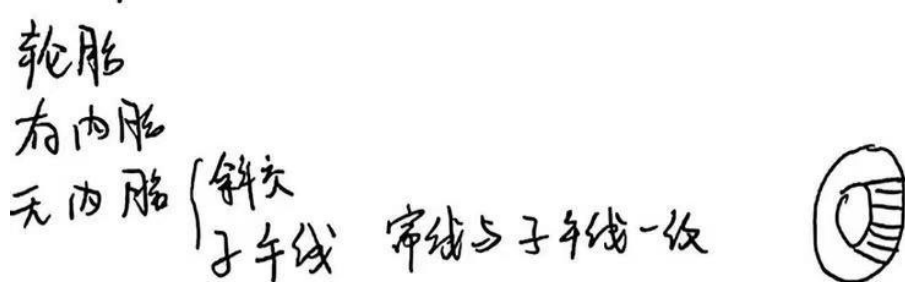 轮胎
有内胎
无内胎 { 斜交
子午线 帘线与子午线一致